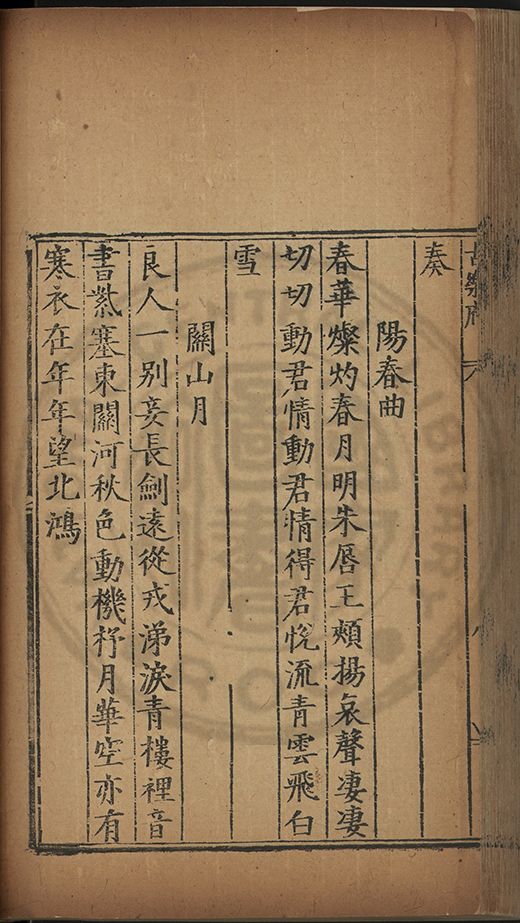 古樂府
奏
陽春曲
春華燦灼春月明朱唇王頰揚哀聲凄凄
切切動君情動君情得君悅流青雲飛白
雪
關山月
良人一别妾長劍遠從戎涕淚青樓裡音
書紫塞東關河秋色動機杼月華空亦有
寒衣在年年望北鴻